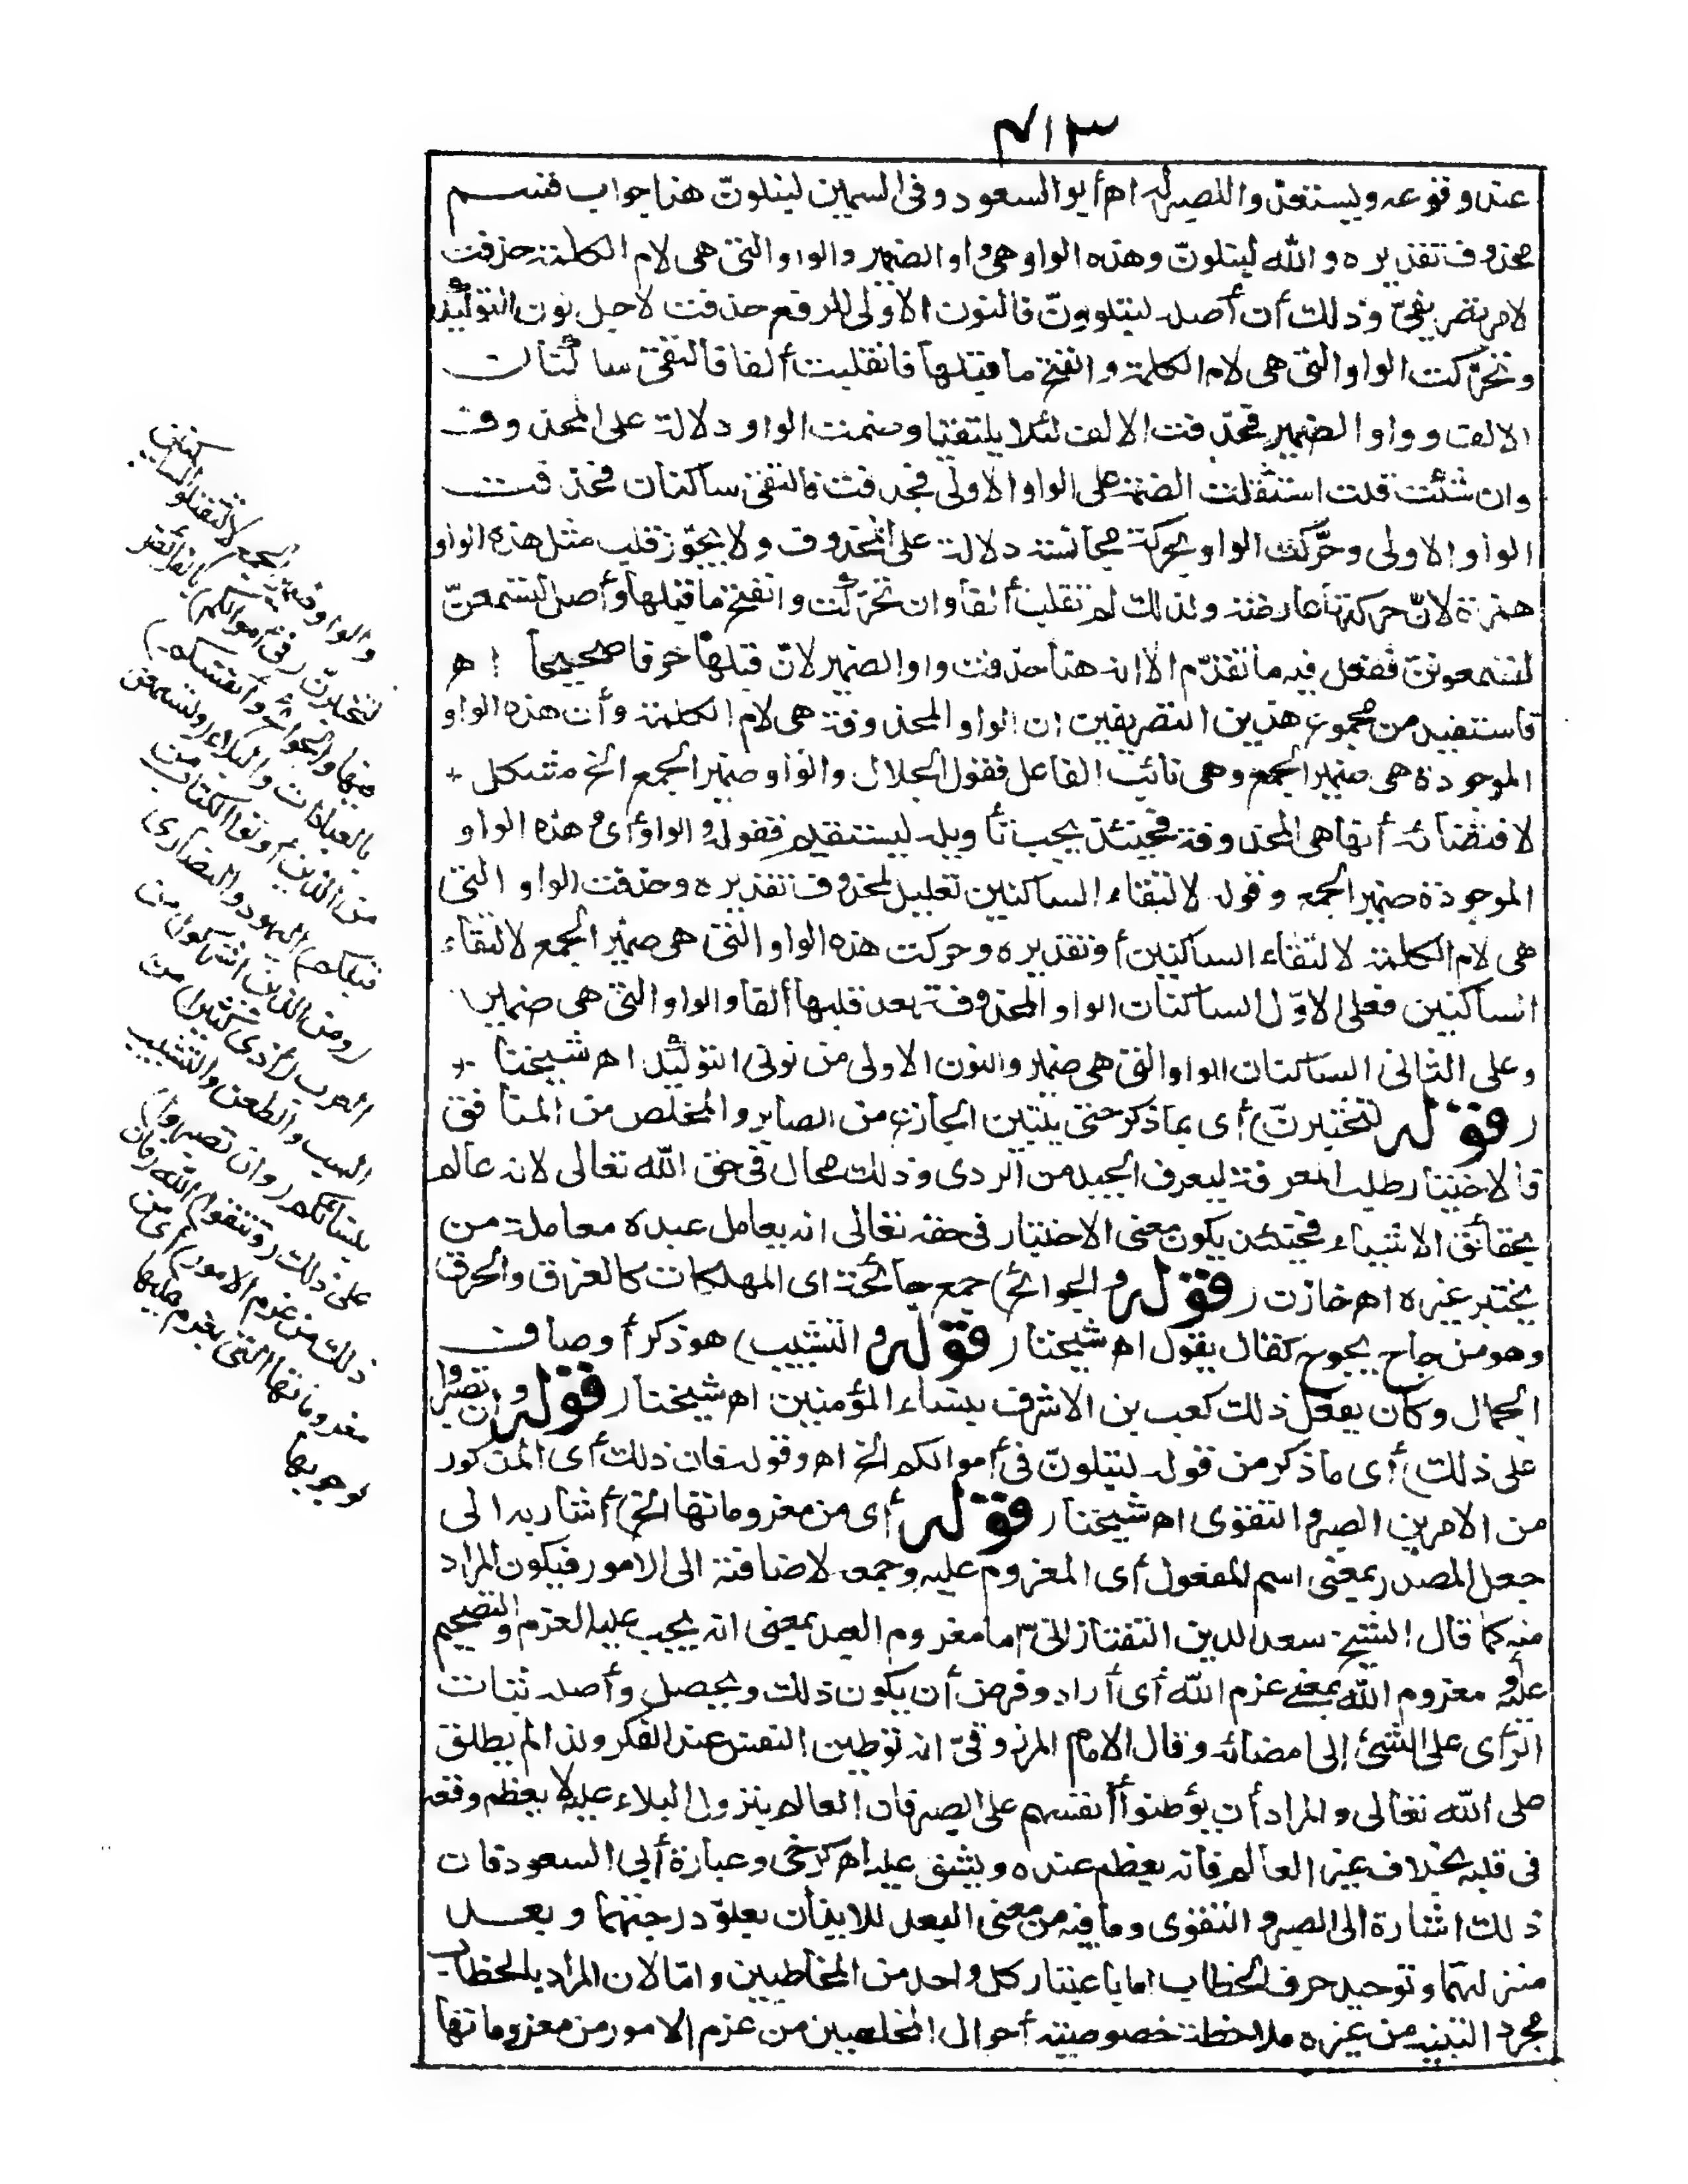 ٣١٣
عند وقوعه ويستعدوا للصبر له اه أبو السعود وفى السمين لتبلون هذا جواب قسم
محذوف تقديره والله لتبلون وهذه الواو هى واو الضمير والواو التى هى لام الكلمة حذفت
لامر تصريفىّ وذلك أن أصله لتبلوونّ فالنون الاولى للرفع حذفت لاجل نون التوكيد
وتحرّكت الواو التى هى لام الكلمة وانفتح ما قبلها فانقلبت ألفا فالتقى ساكنان
الالف وواو الضمير فحذفت الالف لئلا يلتقيا وضمت الواو دلالة على المحذوف
وان شئت قلت استثقلت الضمة على الواو الاولى فحذفت فالتقى ساكنان فحذفت
الواو الاولى وحرّكت الواو بحركة مجانسة دلالة على المحذوف ولا يجوز قلب مثل هذه الواو
همزة لانّ حركتها عارضة ولذلك لم تقلب ألفا وان تحركت وانفتح ما قبلها وأصل لتسمعنّ
لتسمعوننّ ففعل فيه ما تقدّم الا انه هنا حذفت واو الضمير لانّ قبلها حرفا صحيحا اه
فاستفيد من مجموع هذين التصريفين ان الواو المحذوفة هى لام الكلمة وأن هذه الواو
الموجودة هى ضمير الجمع وهى نائب الفاعل فقول الجلال والواو ضمير الجمع الخ مشكل
لاقتضائه أنها هى المحذوفة فحينئذ يجب تأويله ليستقيم فقوله والواو أى وهذه الواو
الموجودة ضمير الجمع وقوله لالتقاء الساكنين تعليل لمحذوف تقديره وحذفت الواو التى
هى لام الكلمة لالتقاء الساكنين أو تقديره وحركت هذه الواو التى هى ضمير الجمع لالتقاء
الساكنين فعلى الاوّل الساكنان الواو المحذوفة بعد قلبها ألفا والواو التى هى ضمير
وعلى الثانى الساكنان الواو التى هى ضمير والنون الاولى من نونى التوكيد اه شيخنا
(قوله لتختبرنّ) أى بما ذكر حتى يتبين الجازع من الصابر والمخلص من المنافق
فالاختبار طلب المعرفة ليعرف الجيد من الردى وذلك محال فى حق الله تعالى لانه عالم
بحقائق الاشياء فحينئذ يكون معنى الاختبار فى حقه تعالى انه يعامل عبده معاملة من
يختبر غيره اه خازن (قوله والجوائح) جمع جائحة اى المهلكات كالغرق والحرق
وهو من جاح يجوح كقال يقول اه شيخنا (قوله والتشبيب) هو ذكر أوصاف
الجمال وكان يفعل ذلك كعب بن الاشرف بنساء المؤمنين اه شيخنا (قوله وان تصبروا
على ذلك) أى ما ذكر من قوله لتبلونّ فى أموالكم الخ اه وقوله فان ذلك أى المذكور
من الامرين الصبر والتقوى اه شيخنا (قوله أى من معزوماتها الخ) أشار به الى
جعل المصدر بمعنى اسم المفعول أى المعزوم عليه وجمعه لاضافته الى الامور فيكون المراد
منه كما قال الشيخ سعد الدين التفتازانى اما معزوم العبد بمعنى انه يجب عليه العزم والتصميم
عليه أو معزوم الله بمعنى عزم الله أى أراد وفرض أن يكون ذلك ويحصل وأصله ثبات
الرأى على الشئ إلى امضائه وقال الامام المرزوقىّ انه توطين النفس عند الفكر ولذا لم يطلق
على الله تعالى والمراد أن يؤطنوا أنفسهم على الصبر فان العالم بنزول البلاء عليه لا يعظم وقعه
فى قلبه بخلاف غير العالم فانه يعظم عنده ويشق عليه اه كرخى وعبارة أبى السعود فان
ذلك اشارة الى الصبر والتقوى وما فيه من معنى البعد للايذان بعلوّ درجتهما وبعد
منزلتهما وتوحيد حرف الخطاب اما باعتبار كل واحد من المخاطبين واما لان المراد بالخطاب
مجرد التنبيه من غير ملاحظة خصوصية أحوال المخاطبين من عزم الامور من معزوماتها
والواو ضمير الجمع لالتقاء الساكنين
لتختبرنّ (فى أموالكم) بالفرائض
فيها والجوائح (وأنفسكم)
بالعبادات والبلاء (ولتسمعن
من الذين أوتوا الكتاب من
قبلكم) اليهود والنصارى
(ومن الذين اشركوا) من
العرب (أذى كثيرا) من
السب والطعن والتشبيب
بنسائكم (وان تصبروا)
على ذلك (وتتقوا) الله (فان
ذلك من عزم الامور) أى من
معزوماتها التى يعزم عليها
لوجوبها